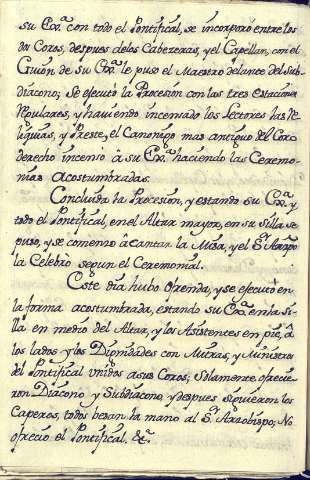 su Exª. con todo el Pontifical, se incorporó entre los
dos Coros, despues de los Caperos, y el Capellan, con el
Guion de su Exª. le puso el Maestro delante del Sub-
diacono; Se executò la Procesion con las tres Estaciones
regulares, y haviendo incensado los Lectores las Re-
liquias, y Preste, el Canonigo mas antiguo del Coro
derecho incensò à su Exª. haciendo las Ceremo-
nias acostumbradas.
Concluida la Procesion, y estando su Exª. y
todo el Pontifical, en el Altar mayor, en su silla se
puso, y se comenzo a cantar la Misa, y el Sr. Arzpo
la Celebrò segun el Ceremonial.
Este dia hubo ofrenda, y se executò en
la forma acostumbrada, estando su Exª. en la si-
lla en medio del Altar, y los Asistentes en pie, â
los lados y los Dignidades con Mitras, y Ministros
del Pontifical unidos a sus Coros; Solamente ofrecie-
ron Diacono y Subdiacono, y despues siguieron los
Caperos, todos besan la mano al Sr. Arzobispo; No
ofrecio el Pontifical. &ª.